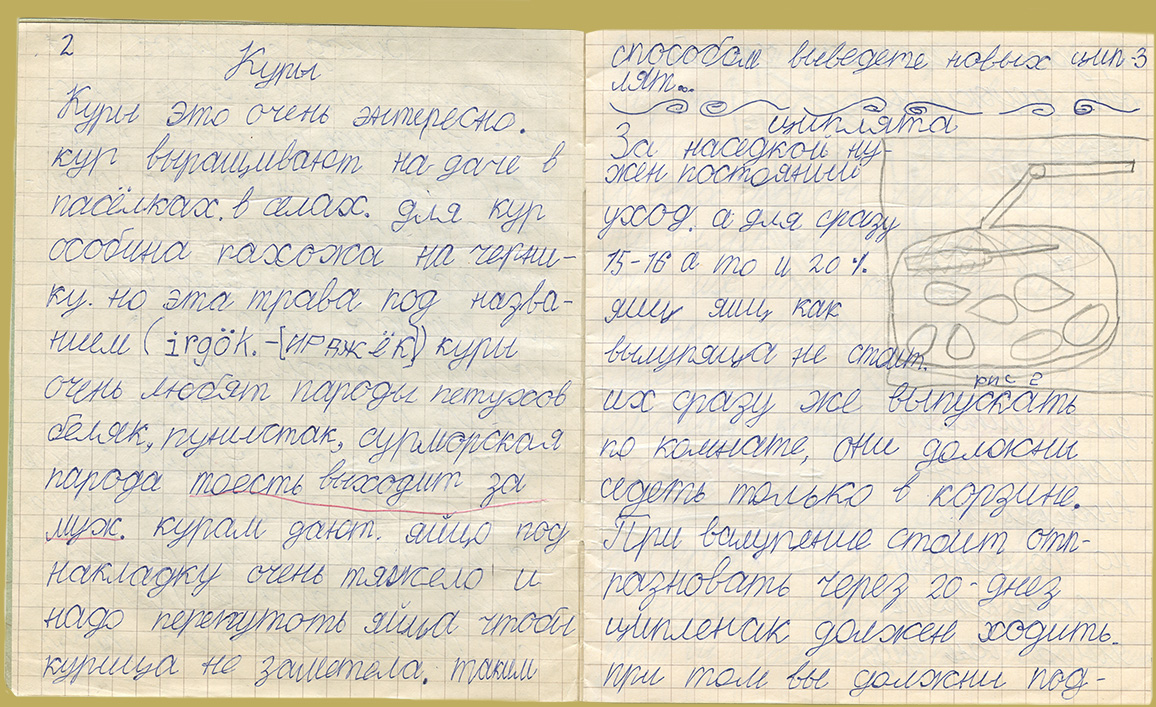 2
Куры
Куры это очень энтересно.
кур выращивают на даче в
пасёлках. в селах. для кур
особина пахожа на черни-
ку. но эта трава под назва-
нием (irgök.-[ИРАЖЁК]) куры
очень любят пароды петухов
беляк, пунистак, сурморская
парода тоесть выходит за
муж. курам дают. яйцо под
накладку очень тяжело и
надо перекутоть яйца чтобы
курица не заметела. таким
способом выведете новых цип- 3
лят...
циплята
За наседкой ну-
жен постоянии
уход. а для сразу
15-16 а то и 20%.
яиц яиц как
вылупяца не стоит.
рис 2
их сразу же выпускать
по комнате, они должни
седеть только в корзине.
При валупение стоит отп-
разновать через 20-днез
ципленак должен ходить.
при том вы должни под-